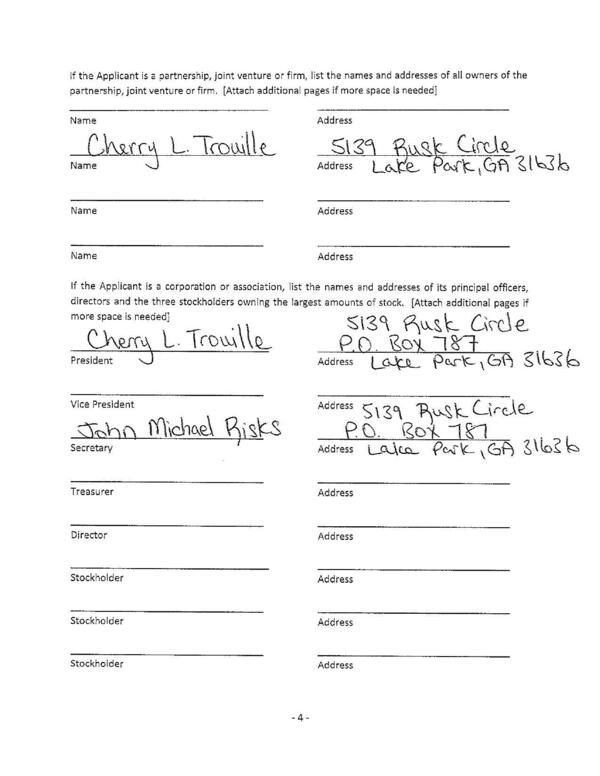 If the Applicant is a partnership, joint venture or firm, list the names and addresses of all owners of the
partnership, joint venture or firm. [Attach additional pages if more space is needed]
Name Address
Cherry L. Trouille 5139 Rusk Circle
Name Address Lake Park, GA 31636
Name Address
Name Address
If the Applicant is a corporation or association, list the names and addresses of its principal officers,
directors and the three stockholders owning the largest amounts of stock. [Attach additional pages if
more space is needed]
5139 Rusk Circle
Cherry L. Trouille P.O. Box 787
President Address Lake Park, GA 31636
Vice President Address 5139 Rusk Circle
John Michael Risks P.O. Box 787
Secretary Address Lake Park, GA 31636
Treasurer Address
Director Address
Stockholder Address
Stockholder Address
Stockholder Address
- 4 -